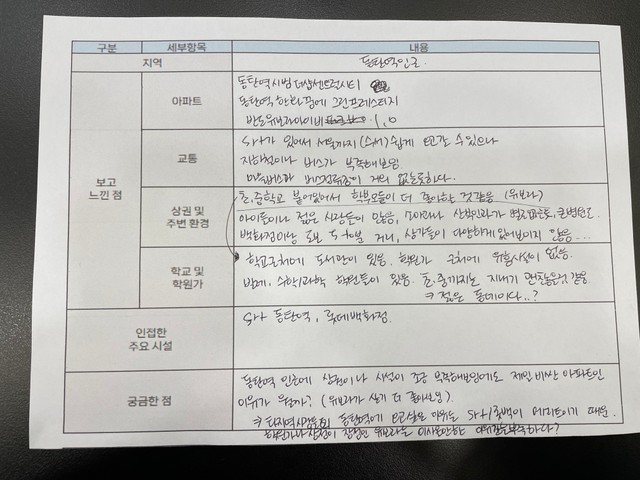 구분 세부항목 내용
지역 동탄역 인근
보고 느낀 점
아파트
동탄역시범더샵센트럴시티
동탄역 한화꿈에그린프레스티지
반도유보라아이비 1.0
교통
SRT가 있어서 서울까지 (수서) 쉽게 오고갈 수 있으나
지하철이나 버스가 부족해보임
버스정류장이 거의 없는듯하다.
상권 및 주변 환경
초,중학교 붙어있어서 학부모들이 더 좋아하는 것 같음 (유보라)
아이들이나 젊은 사람들이 많음, 소아과나 산부인과가
백화점이랑 도보 5~10분 거리, 상가들이 다양하게 있어보이지 않음...
학교 및 학원가
학교근처에 도서관이 있음. 학원가 근처에 유흥시설이 없음.
밤에, 수학/과학 학원들이 있음. 초,중까지는 지내기 괜찮을것 같음
→ 젊은 동네이다..?
인접한 주요 시설
SRT 동탄역, 롯데백화점.
궁금한 점
동탄역 인근에 상권이나 시설이 조금 부족해보임에도 제일 비싼 아파트인
이유가 뭔가? (유보라가 살기 더 좋아보임)
동탄역에 살고싶은 이유는 SRT/롯백이 메리트이기 때문
학원가나 상권이 장점인 유보라는 이사올만한